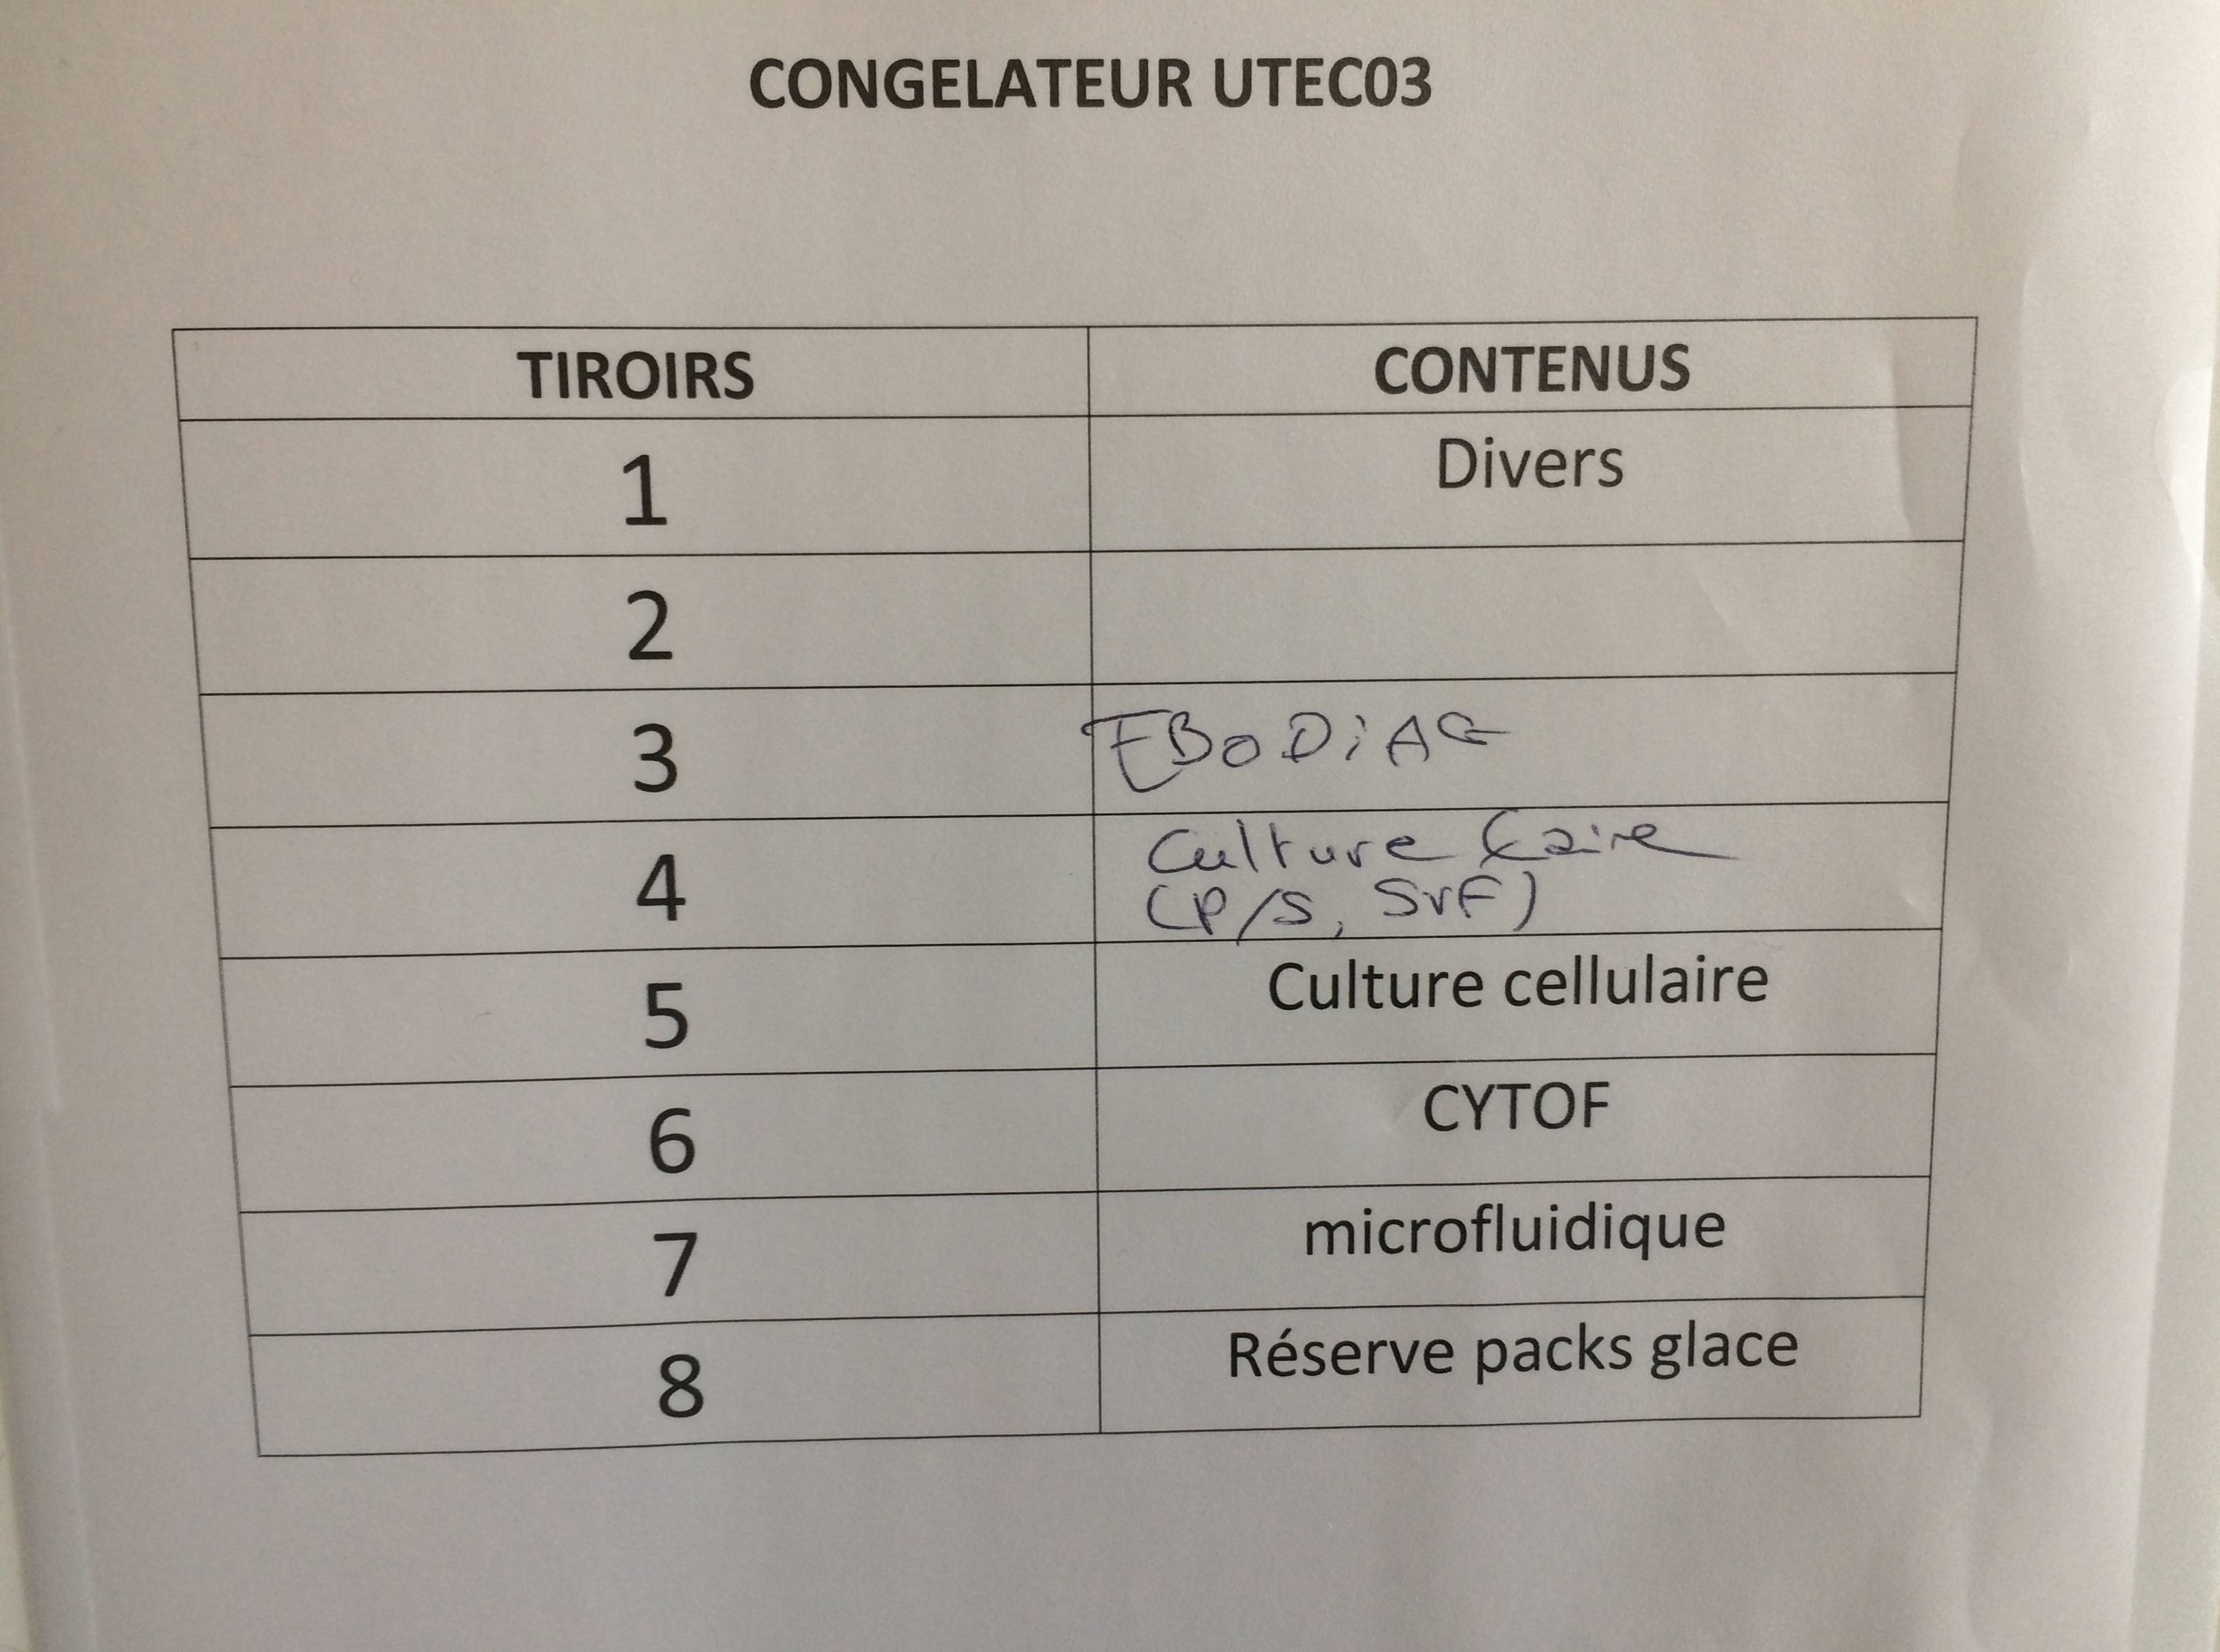 CONGELATEUR UTEC03
TIROIRS CONTENUS
1 Divers
2
3 EBODiAG
4 Culture
(P/S, SVF)
5 Culture cellulaire
6 CYTOF
7 microfluidique
8 Réserve packs glace